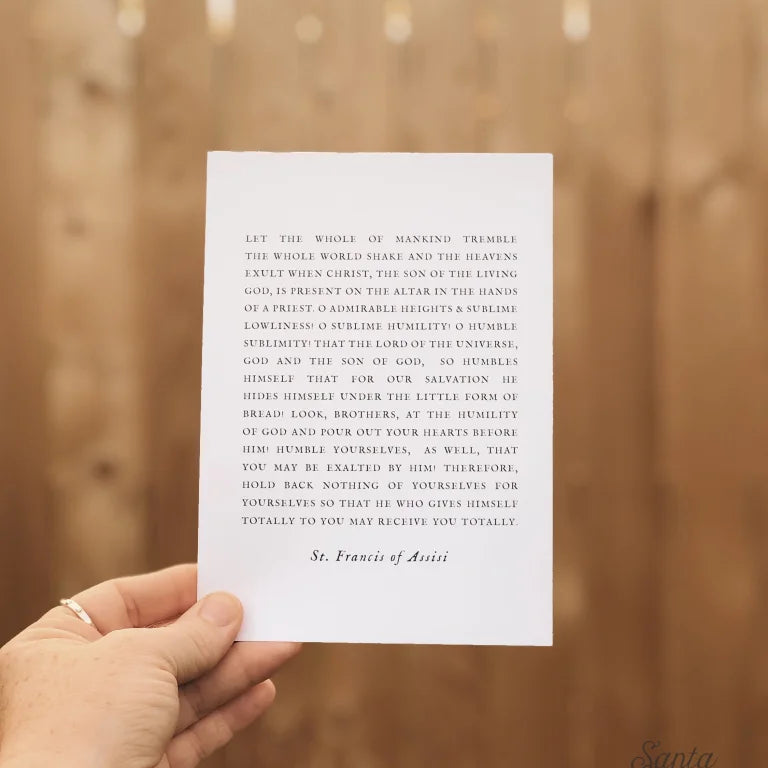 LET THE WHOLE OF MANKIND TREMBLE
THE WHOLE WORLD SHAKE AND THE HEAVENS
EXULT WHEN CHRIST, THE SON OF THE LIVING
GOD, IS PRESENT ON THE ALTAR IN THE HANDS
OF A PRIEST. O ADMIRABLE HEIGHTS & SUBLIME
LOWLINESS! O SUBLIME HUMILITY! O HUMBLE
SUBLIMITY! THAT THE LORD OF THE UNIVERSE,
GOD AND THE SON OF GOD, SO HUMBLES
HIMSELF THAT FOR OUR SALVATION HE
HIDES HIMSELF UNDER THE LITTLE FORM OF
BREAD! LOOK, BROTHERS, AT THE HUMILITY
OF GOD AND POUR OUT YOUR HEARTS BEFORE
HIM! HUMBLE YOURSELVES, AS WELL, THAT
YOU MAY BE EXALTED BY HIM! THEREFORE,
HOLD BACK NOTHING OF YOURSELVES FOR
YOURSELVES SO THAT HE WHO GIVES HIMSELF
TOTALLY TO YOU MAY RECEIVE YOU TOTALLY.
St. Francis of Assisi
Santa